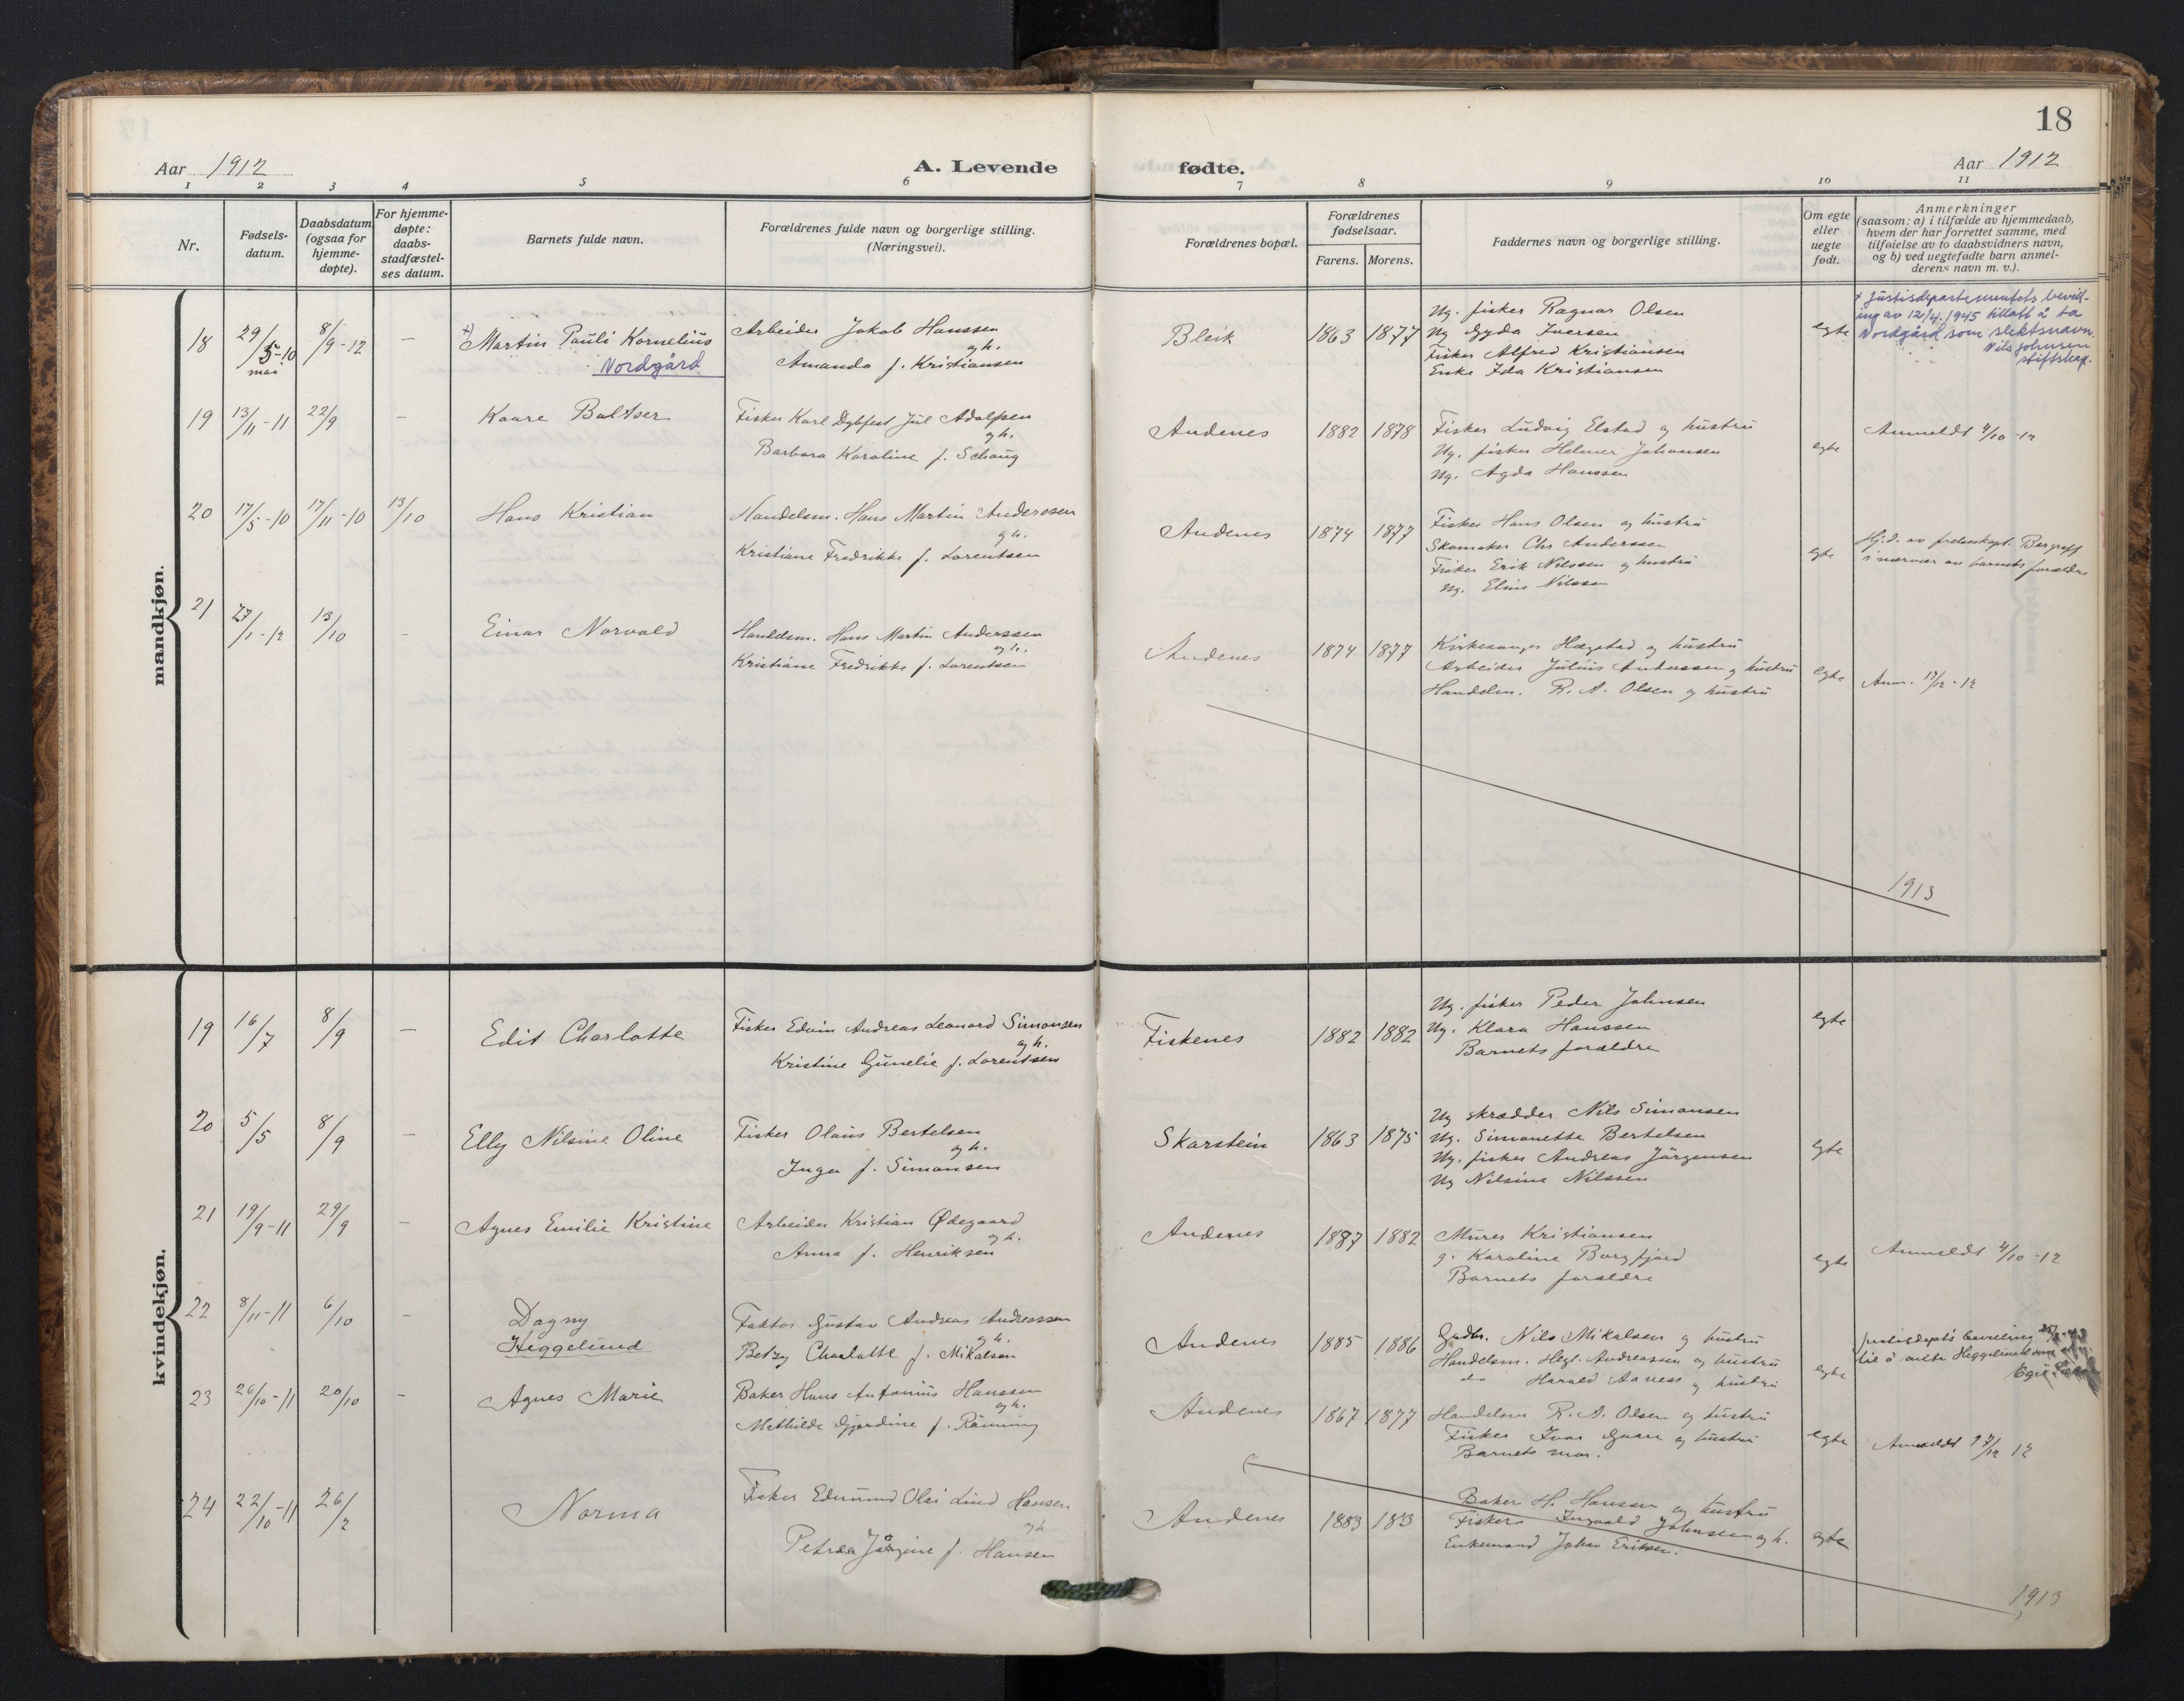 18
Aar 1912
A. Levende
fødte.
Aar 1912
1 2 3 4 5 6 7 8 9 10 11
Nr.
Fødsels-
datum.
Daabsdatum
(ogsaa for
hjemme-
døpte).
For hjemme-
døpte:
daabs-
stadfæstel-
ses datum.
Barnets fulde navn.
Forældrenes fulde navn og borgerlige stilling.
(Næringsvei).
Forældrenes bopæl.
Forældrenes
fødselsaar.
Farens. Morens.
Faddernes navn og borgerlige stilling.
Om egte
eller
uegte
født.
Anmerkninger
(saasom: a) i tilfælde av hjemmedaab,
hvem der har forrettet samme, med
tilføielse av to daabsvidners navn,
og b) ved uegtefødte barn anmel-
derens navn m. v.).
mandkjøn.
18 29/5-10 8/9-12 — +) Martin Pauli Kornelius
mai
Nordgård
Arbeider Jakob Hanssen
og h.
Amanda f. Kristiansen
Bleik 1863 1877
Ug. fisker Ragnar Olsen
Ug Gyda Iversen
Fisker Alfred Kristiansen
Enke Ida Kristiansen
egte
+ Justisdepartementets bevill-
ing av 12/4.1945 tillatt å ta
Nordgård som slektsnavn.
Nils Johnsen
stiftskap.
19 13/11-11 22/9 — Kaare Baltser
Fisker Karl Dybfest Jul Adolfsen
og h.
Barbara Karoline f. Schaug
Andenes 1882 1878
Fisker Ludvig Elstad og hustru
Ug. fisker Helmer Johansen
Ug. Agda Hanssen
egte
Anmeldt 4/10-12
20 17/5-10 17/11-10 13/10 Hans Kristian
Handelsm. Hans Martin Anderssen
og h.
Kristiane Fredrikke f. Lorentsen
Andenes 1874 1877
Fisker Hans Olsen og hustru
Skomaker Chr Anderssen
Fisker Erik Nilssen og hustru
Ug. Eline Nilssen
egte
Hj.d. av frelseskapt. Bergraff
i nærvær av barnets forældre
21 27/1-12 13/10 — Einar Norvald
Handelsm. Hans Martin Anderssen
og h.
Kristiane Fredrikke f. Lorentsen
Andenes 1874 1877
Kirkesanger Hægstad og hustru
Arbeider Julius Anderssen og hustru
Handelsm. R. A. Olsen og hustru
egte
Anm. 17/12-12
1913
kvindekjøn.
19 16/7 8/9 — Edit Charlotte
Fisker Edvin Andreas Leonard Simonsen
og h.
Kristine Gunelie f. Lorentsen
Fiskenes 1882 1882
Ug. fisker Peder Johnsen
Ug. Klara Hanssen
Barnets forældre
egte
20 5/5 8/9 — Elly Nilsine Oline
Fisker Olaus Bertelsen
og h.
Inga f. Simonsen
Skarstein 1863 1875
Ug skrædder Nils Simonsen
Ug. Simonette Bertelsen
Ug. fisker Andreas Jørgensen
Ug Nilsine Nilssen
egte
21 19/9-11 29/9 — Agnes Emilie Kristine
Arbeider Kristian Ødegaard
og h.
Anna f. Henriksen
Andenes 1887 1882
Murer Kristiansen
g. Karoline Borgfjord
Barnets forældre
egte
Anmeldt 4/10-12
22 8/11-11 6/10 — Dagny
Heggelund
Faktor Gustav Andreas Andreassen
og h.
Betzy Charlotte f. Mikalsen
Andenes 1885 1886
Gudbr. Nils Mikalsen og hustru
Handelsm. Hegl. Andreassen og hustru
do Harald Aaness og hustru
egte
justisdepts bevilling
til å anta Heggelund som
23 26/10-11 20/10 — Agnes Marie
Baker Hans Antonius Hanssen
og h.
Methilde Gjerdine f. Rønning
Andenes 1867 1877
Handelsm R. A. Olsen og hustru
Fisker Ivar Gaare og hustru
Barnets mor.
egte
Anmeldt 17/12 12
24 22/10-11 26/2 Norma
Fisker Edmund Olai Lind Hansen
og h
Petrea Jørgine f. Hansen
Andenes 1883 183
Baker H. Hanssen og hustru
Fisker Ingvald Johnsen og h.
Enkemand Johan Eriksen.
egte
1913